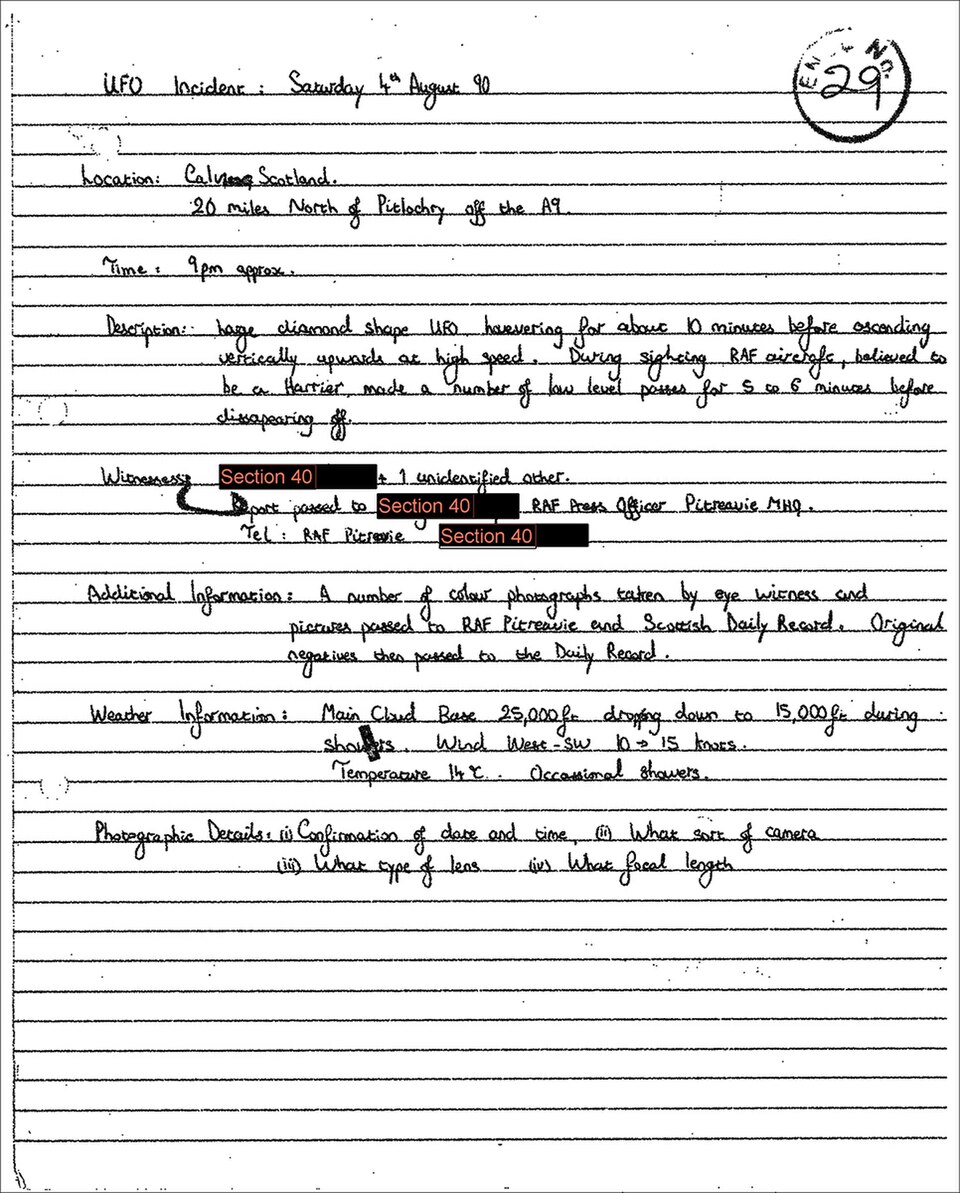 EN No.
29
UFO Incident : Saturday 4th August 90
Location: Scotland.
20 miles North of Pitlochry off the A9.
Time : 9pm approx.
Description: Large diamond shape UFO hovering for about 10 minutes before ascending
vertically upwards at high speed. During sighting RAF aircraft, believed to
be a Harrier, made a number of low level passes for 5 to 6 minutes before
dissapearing off.
Witnesses: Section 40 + 1 unidentified other.
Report passed to Section 40 RAF Press Officer Pitreavie MHQ.
Tel : RAF Pitreavie Section 40
Additional Information : A number of colour photographs taken by eye witness and
pictures passed to RAF Pitreavie and Scottish Daily Record. Original
negatives then passed to the Daily Record.
Weather Information : Main Cloud Base 25,000ft dropping down to 15,000ft during
showers. Wind West-SW 10 → 15 knots.
Temperature 14°C. Occassional showers.
Photographic Details : (i) Confirmation of date and time, (ii) What sort of camera
(iii) What type of lens (iv) What focal length